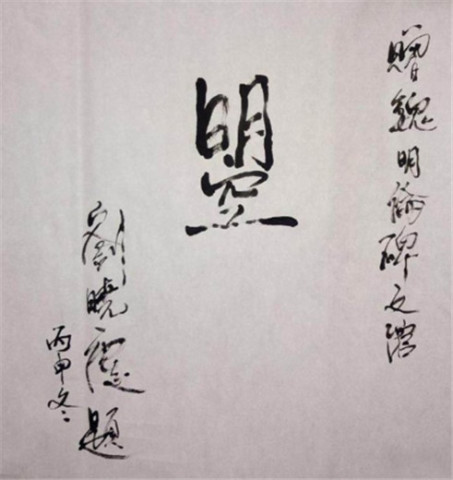 贈魏明倫碑文館
盟
劉曉慶題
丙申冬